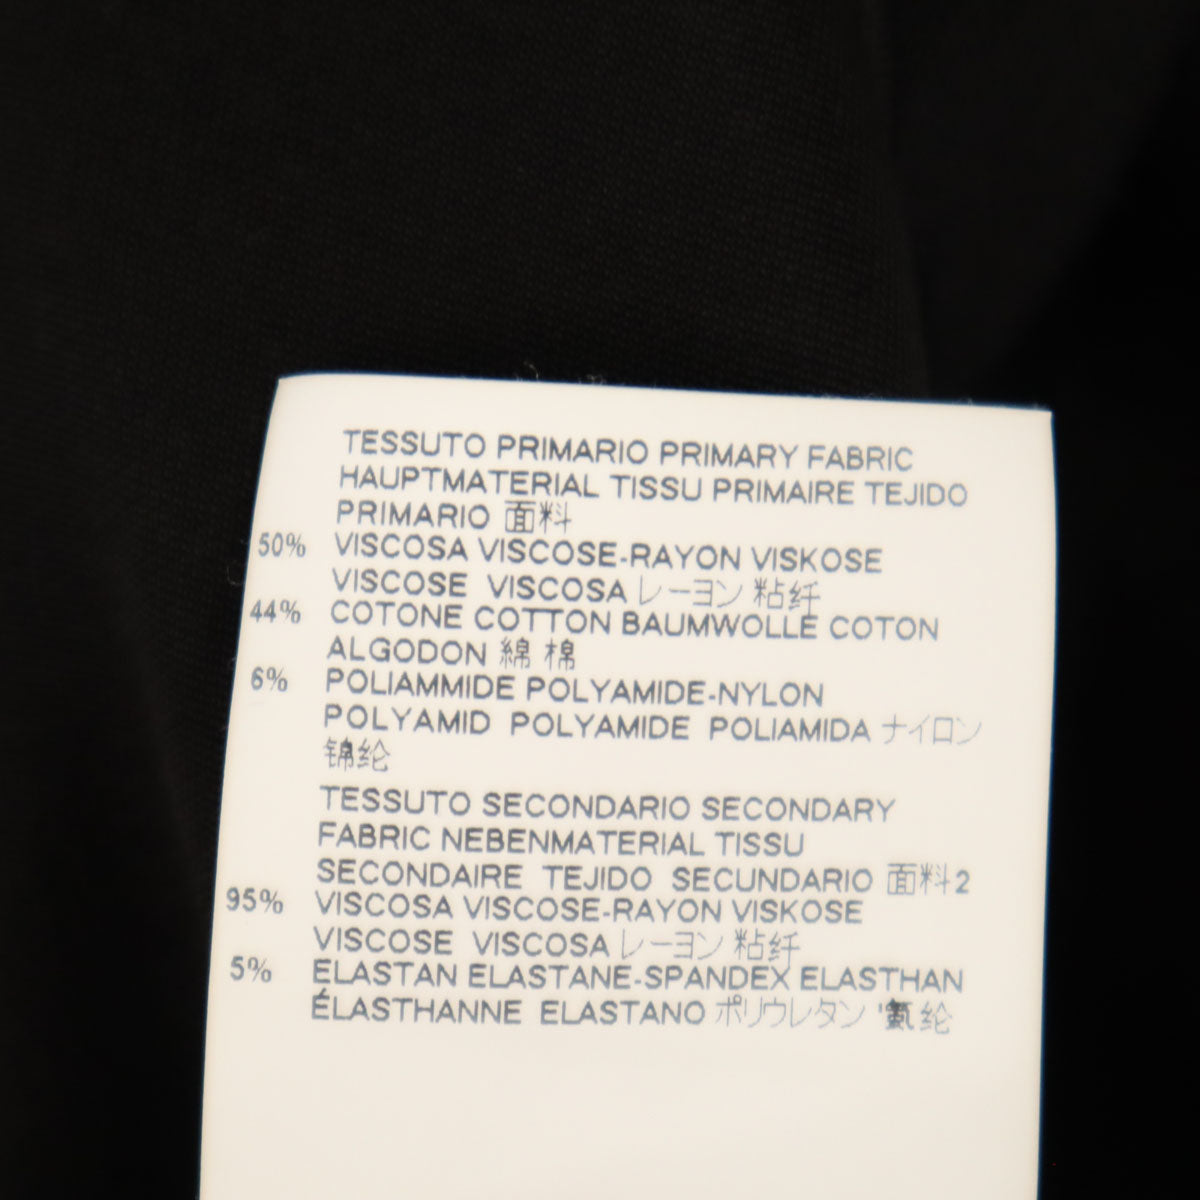 TESSUTO PRIMARIO PRIMARY FABRIC
HAUPTMATERIAL TISSU PRIMAIRE TEJIDO
PRIMARIO 面料
50% VISCOSA VISCOSE-RAYON VISKOSE
VISCOSE VISCOSA レーヨン 粘纤
44% COTONE COTTON BAUMWOLLE COTON
ALGODON 綿 棉
6% POLIAMMIDE POLYAMIDE-NYLON
POLYAMID POLYAMIDE POLIAMIDA ナイロン
锦纶
TESSUTO SECONDARIO SECONDARY
FABRIC NEBENMATERIAL TISSU
SECONDAIRE TEJIDO SECUNDARIO 面料2
95% VISCOSA VISCOSE-RAYON VISKOSE
VISCOSE VISCOSA レーヨン 粘纤
5% ELASTAN ELASTANE-SPANDEX ELASTHAN
ÉLASTHANNE ELASTANO ポリウレタン